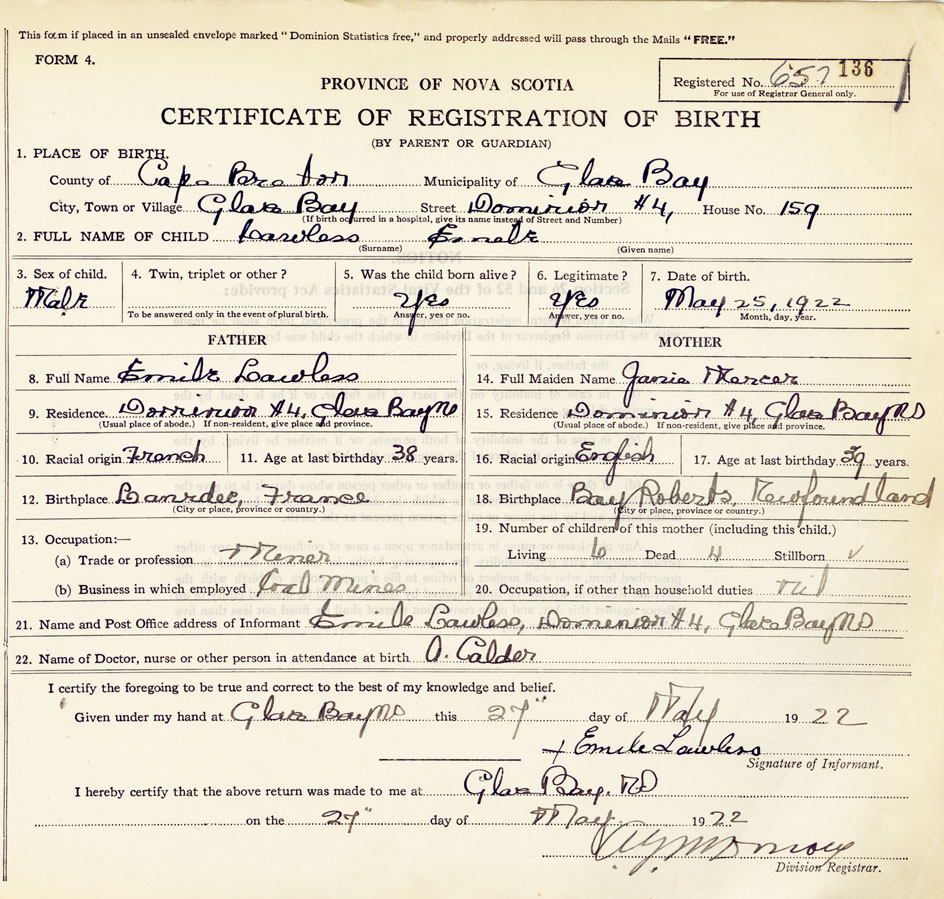 This form if placed in an unsealed envelope marked "Dominion Statistics free," and properly addressed will pass through the Mails "FREE."
FORM 4.
Registered No. 657 136
For use of Registrar General only.
PROVINCE OF NOVA SCOTIA
CERTIFICATE OF REGISTRATION OF BIRTH
(BY PARENT OR GUARDIAN)
1. PLACE OF BIRTH.
County of Cape Breton Municipality of Glace Bay
City, Town or Village Glace Bay Street Dominion #4, House No. 159
(If birth occurred in a hospital, give its name instead of Street and Number)
2. FULL NAME OF CHILD Lawless Emile
(Surname) (Given name)
3. Sex of child. 4. Twin, triplet or other? 5. Was the child born alive? 6. Legitimate? 7. Date of birth.
Male Yes Yes May 25, 1922
To be answered only in the event of plural birth. Answer, yes or no. Answer, yes or no. Month, day, year.
FATHER MOTHER
8. Full Name Emile Lawless 14. Full Maiden Name Janie Mercer
9. Residence. Dominion #4, Glace Bay NS 15. Residence Dominion #4, Glace Bay NS
(Usual place of abode.) If non-resident, give place and province. (Usual place of abode.) If non-resident, give place and province.
10. Racial origin French 11. Age at last birthday 38 years. 16. Racial origin English 17. Age at last birthday 39 years.
12. Birthplace France 18. Birthplace Bay Roberts, Newfoundland
(City or place, province or country.) (City or place, province or country.)
13. Occupation:— 19. Number of children of this mother (including this child.)
(a) Trade or profession Miner Living 6 Dead 4 Stillborn
(b) Business in which employed Coal Mines 20. Occupation, if other than household duties Nil
21. Name and Post Office address of Informant Emile Lawless, Dominion #4, Glace Bay NS
22. Name of Doctor, nurse or other person in attendance at birth A. Calder
I certify the foregoing to be true and correct to the best of my knowledge and belief.
Given under my hand at Glace Bay NS this 27" day of May 1922
+ Emile Lawless
Signature of Informant.
I hereby certify that the above return was made to me at Glace Bay. NS
on the 27" day of May 1922
Division Registrar.